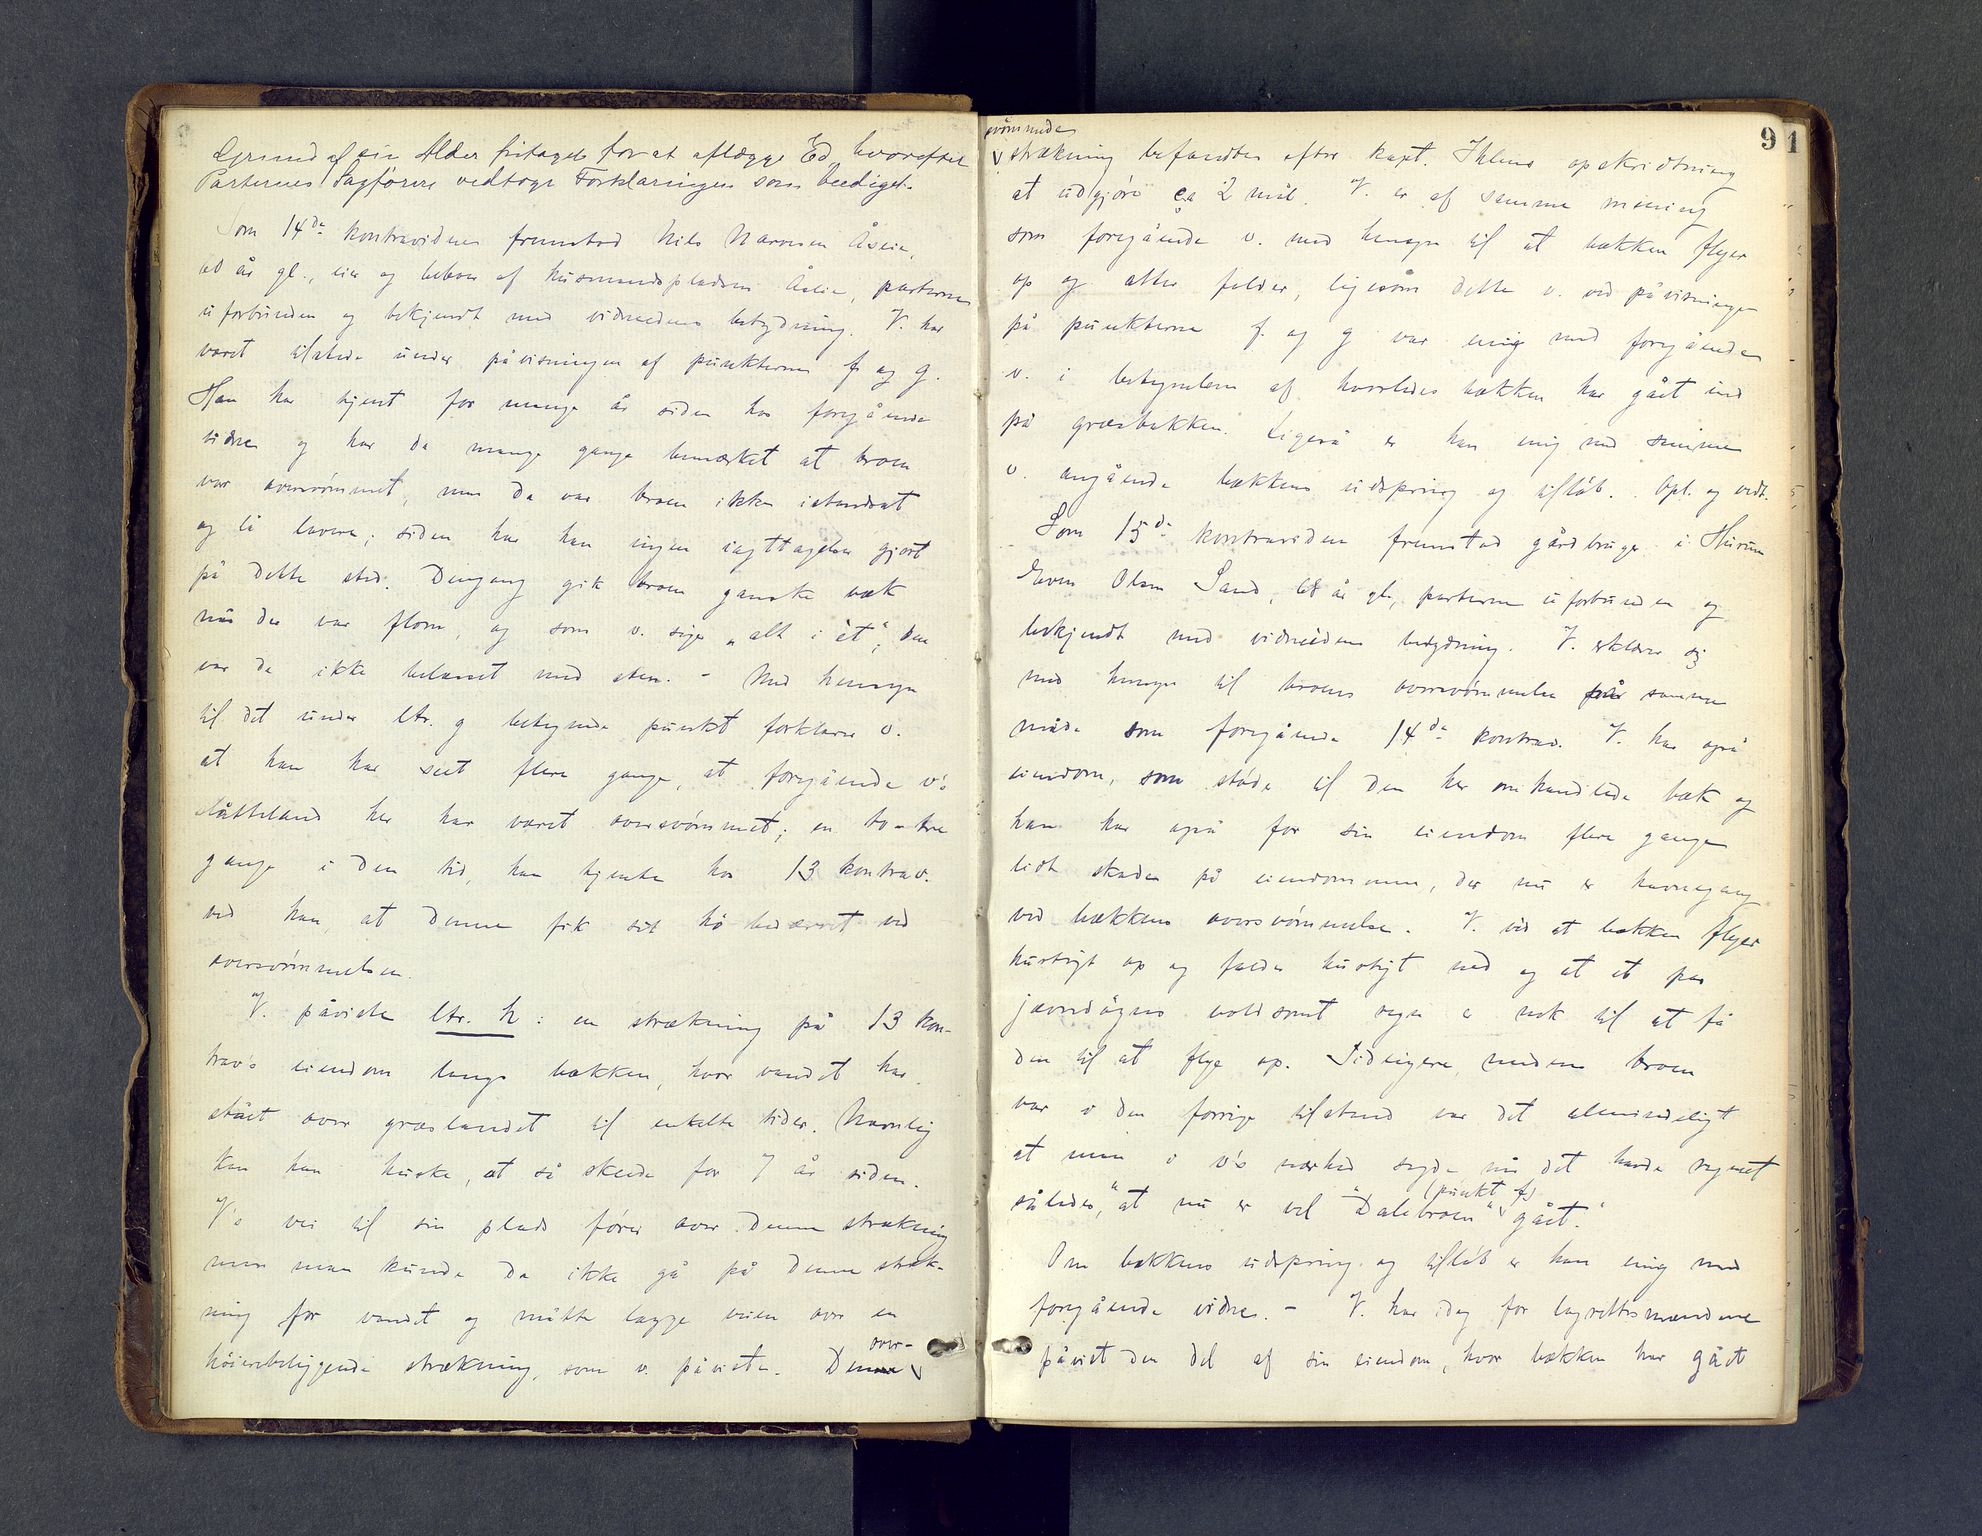 Grund af sin Alder fritaget for at aflægge Ed, hvorefter
Parternes Sagførere vedtoge Forklaringen som beediget.
Som 14de kontravidne fremstod Nils Åslie,
år gl., eier og beboer af husmandspladsen Åslie, parterne
uforbunden og bekjendt med vidneedens betydning. V. har
været tilstede under påvisningen af punkterne f og g.
Han har tjent for mange år siden hos foregående
vidne og har da mange gange bemærket at broen
var oversvømmet, men da var broen ikke istandsat
og lå lavere; siden har han ingen iagttagelser gjort
på dette sted. Dengang gik broen ganske væk
når der var flom, og som v. siger „alt i ét“; den
var da ikke belæsset med sten. - Med hensyn
til det under ltr. g betegnede punkt forklarer v.
at han har seet flere gange, at foregående v's
slåtteland her har været oversvømmet; en to-tre
gange i den tid, han tjente hos 13 kontrav.
ved han, at denne fik sit hø bedærvet ved
oversvømmelsen.
V. påviste ltr. h: en strækning på 13 kon-
trav's eiendom langs bækken, hvor vandet har
stået over græslandet til enkelte tider. Navnlig
kan han huske, at så skede for 7 år siden.
V's vei til sin plads fører over denne strækning
men man kunde da ikke gå på denne stræk-
ning for vandet og måtte lægge veien over en
høierebeliggende strækning, som v. påviste. Denne over-
91
svømmede
strækning befandtes efter kapt. Ihlens opskridtning
at udgjøre ca 2 mål. V. er af samme mening
som foregående v. med hensyn til at bækken flyer
op og atter falder, ligesom dette v. ved påvisningen
på punkterne f. og g var enig med foregående
v. i betegnelsen af hvorledes bækken har gået ind
på græsbakken. Ligeså er han enig med samme
v. angående bækkens udspring og tilløb. Opl. og vedt.
Som 15de kontravidne fremstod gårdbruger i Hurum
Even Olsen Sand, 68 år gl., parterne uforbunden og
bekjendt med vidneedens betydning. V. erklærer sig
med hensyn til broens oversvømmelse på samme
måde som foregående 14de kontrav. V. har også
eiendom, som støder til den her omhandlede bæk og
han har også for sin eiendom flere gange
lidt skade på eiendommen, der nu er havnegang
ved bækkens oversvømmelse. V. ved at bækken flyer
hurtigt op og falder hurtigt ned og at et par
jævndøgns voldsomt regn er nok til at få
den til at flye op. Tidligere, medens broen
var i den forrige tilstand var det almindeligt
at man i v's nærhed sagde når det havde regnet
således, "at nu er vel "Dalebroen" (punkt f) gået."
Om bækkens udspring og tilløb er han enig med
foregående vidne. - V. har idag for lagrettesmændene
påvist den del af sin eiendom, hvor bækken har gået